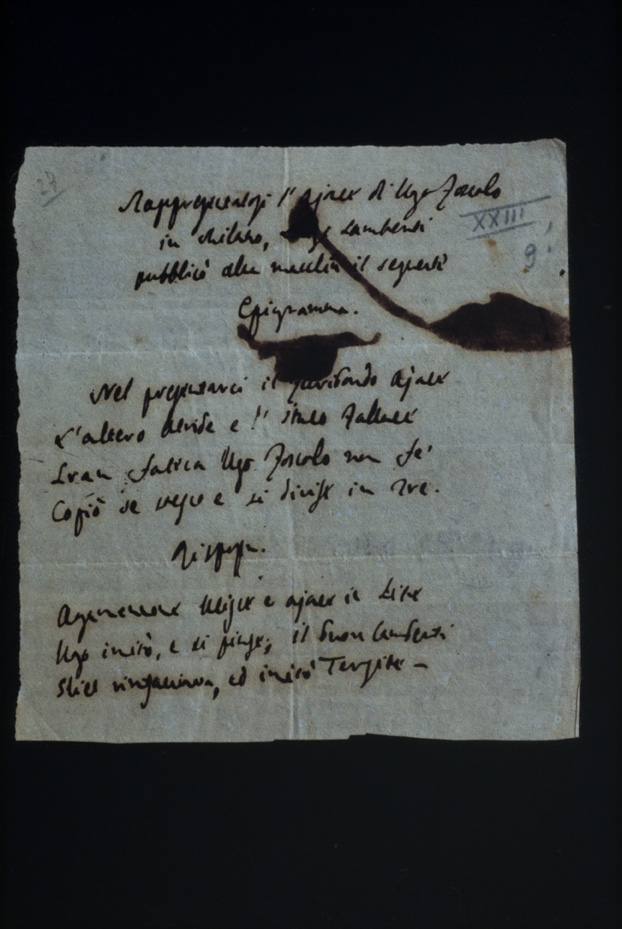 29
Rappresentasi l'Ajace di Ugo Foscolo
XXIII
in Milano, Lamberti
9
pubblicò alla macchia il seguente
Epigramma.
Nel presentarci il furibondo Ajace
L'altero Atride e l' Itaco fallace
Gran fatica Ugo Foscolo non fe'
Copiò se stesso e si divise in tre.
Risposta.
Agamennone Ulisse e Ajace in Lite
Ugo imitò, e si pinse; il buon Lamberti
ringhiava, ed imitò Tersite –